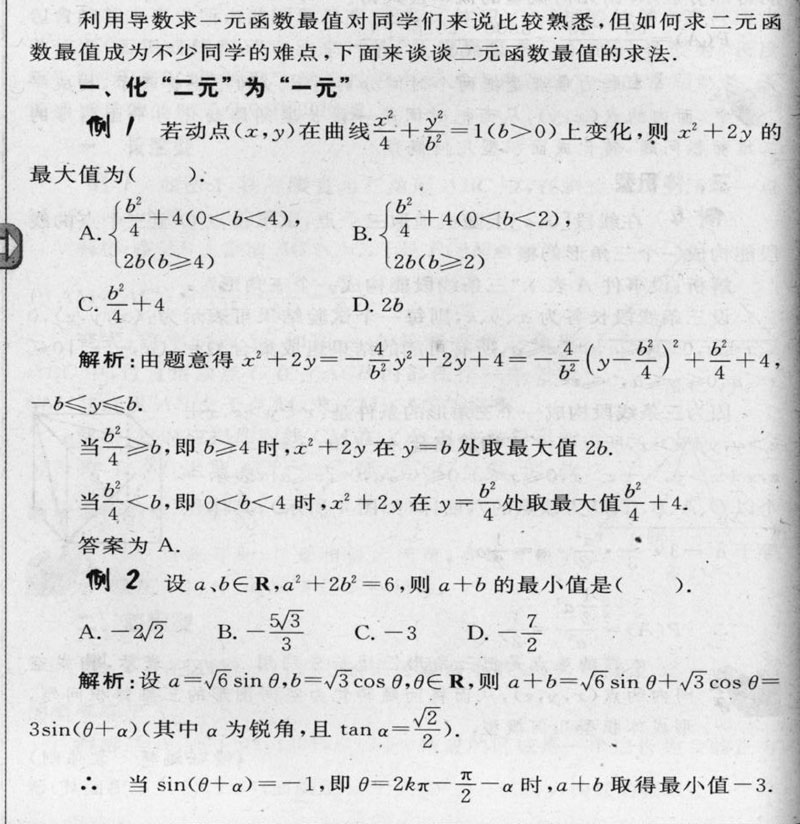 利用导数求一元函数最值对同学们来说比较熟悉,但如何求二元函
数最值成为不少同学的难点,下面来谈谈二元函数最值的求法.
一、化“二元”为“一元”
例1 若动点(x,y)在曲线x²/4+y²/b²=1(b>0)上变化,则 x²+2y 的
最大值为( ).
A. { b²/4+4(0<b<4), 2b(b≥4) B. { b²/4+4(0<b<2), 2b(b≥2)
C. b²/4+4 D. 2b
解析:由题意得 x²+2y=-4/b² y²+2y+4=-4/b² (y-b²/4)²+b²/4+4,
-b≤y≤b.
当b²/4≥b,即 b≥4 时,x²+2y 在 y=b 处取最大值 2b.
当b²/4<b,即 0<b<4 时,x²+2y 在 y=b²/4处取最大值b²/4+4.
答案为 A.
例2 设 a、b∈R,a²+2b²=6,则 a+b 的最小值是( ).
A. -2√2 B. -5√3/3 C. -3 D. -7/2
解析:设 a=√6 sin θ,b=√3 cos θ,θ∈R,则 a+b=√6 sin θ+√3 cos θ=
3sin(θ+α)(其中 α 为锐角,且 tan α=√2/2).
∴ 当 sin(θ+α)=-1,即 θ=2kπ-π/2-α 时,a+b 取得最小值-3.